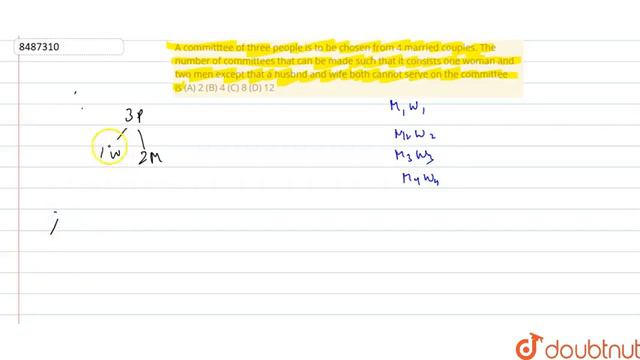 8487310
A committtee of three people is to be chosen from 4 married couples. The
number of committees that can be made such that it consists one woman and
two men except that a husbnd and wife both cannot serve on the committee
is (A) 2 (B) 4 (C) 8 (D) 12
3P
1W 2M
M₁ W₁
M₂ W₂
M₃ W₃
M₄ W₄
doubtnut